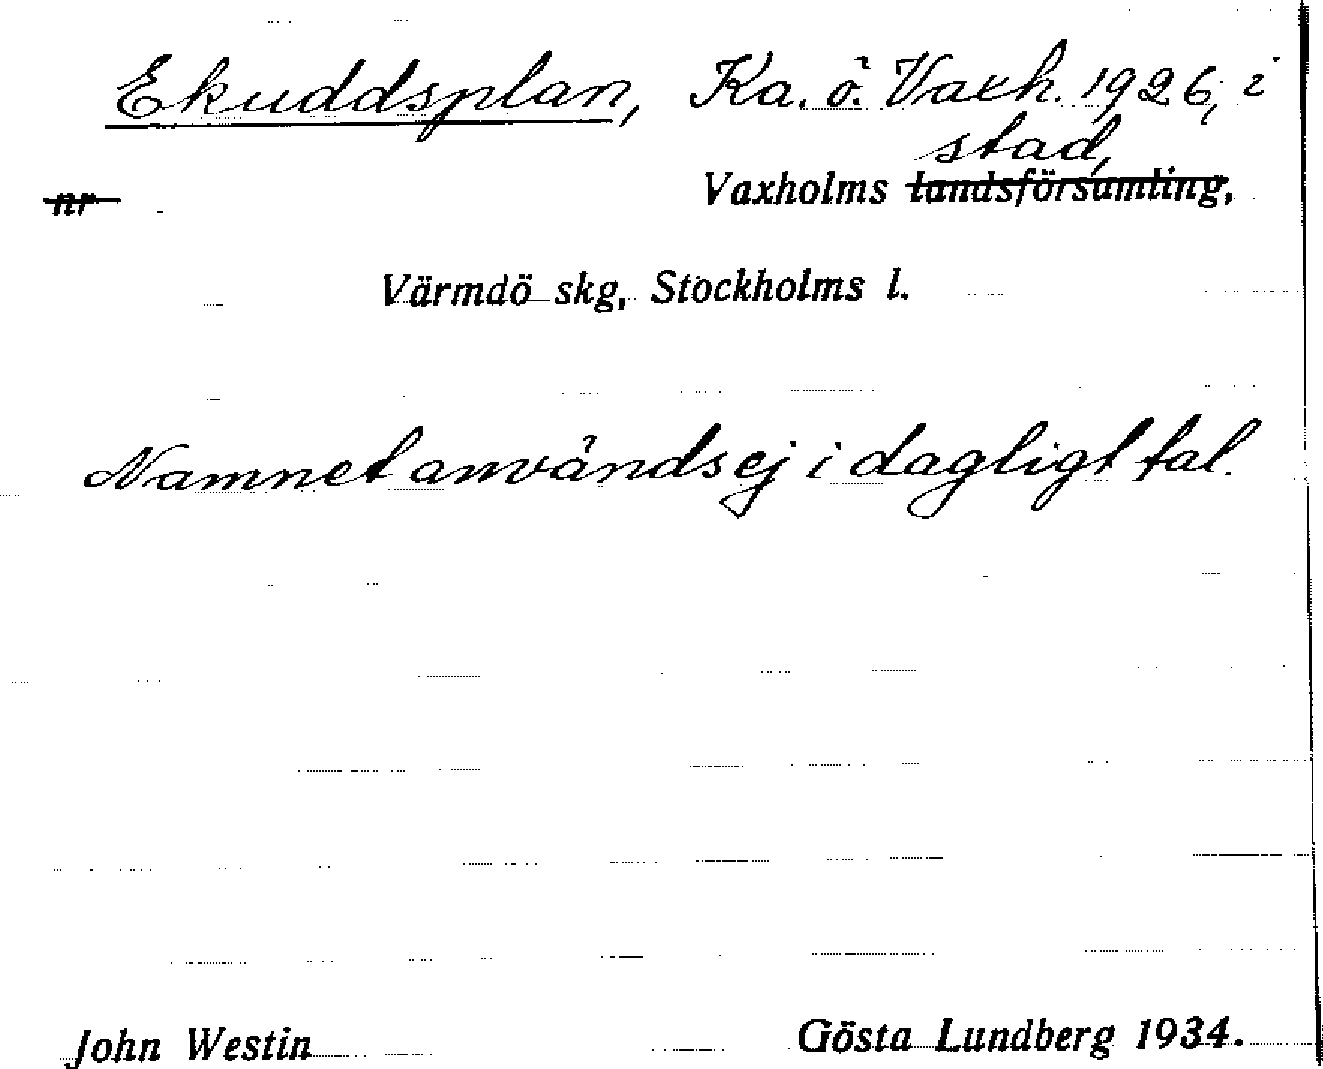 Ekuddsplan, Ka. ö. Vaxh. 1926, i
stad,
nr Vaxholms landsförsamling,
Värmdö skg, Stockholms l.
Namnet används ej i dagligt tal.
John Westin Gösta Lundberg 1934.